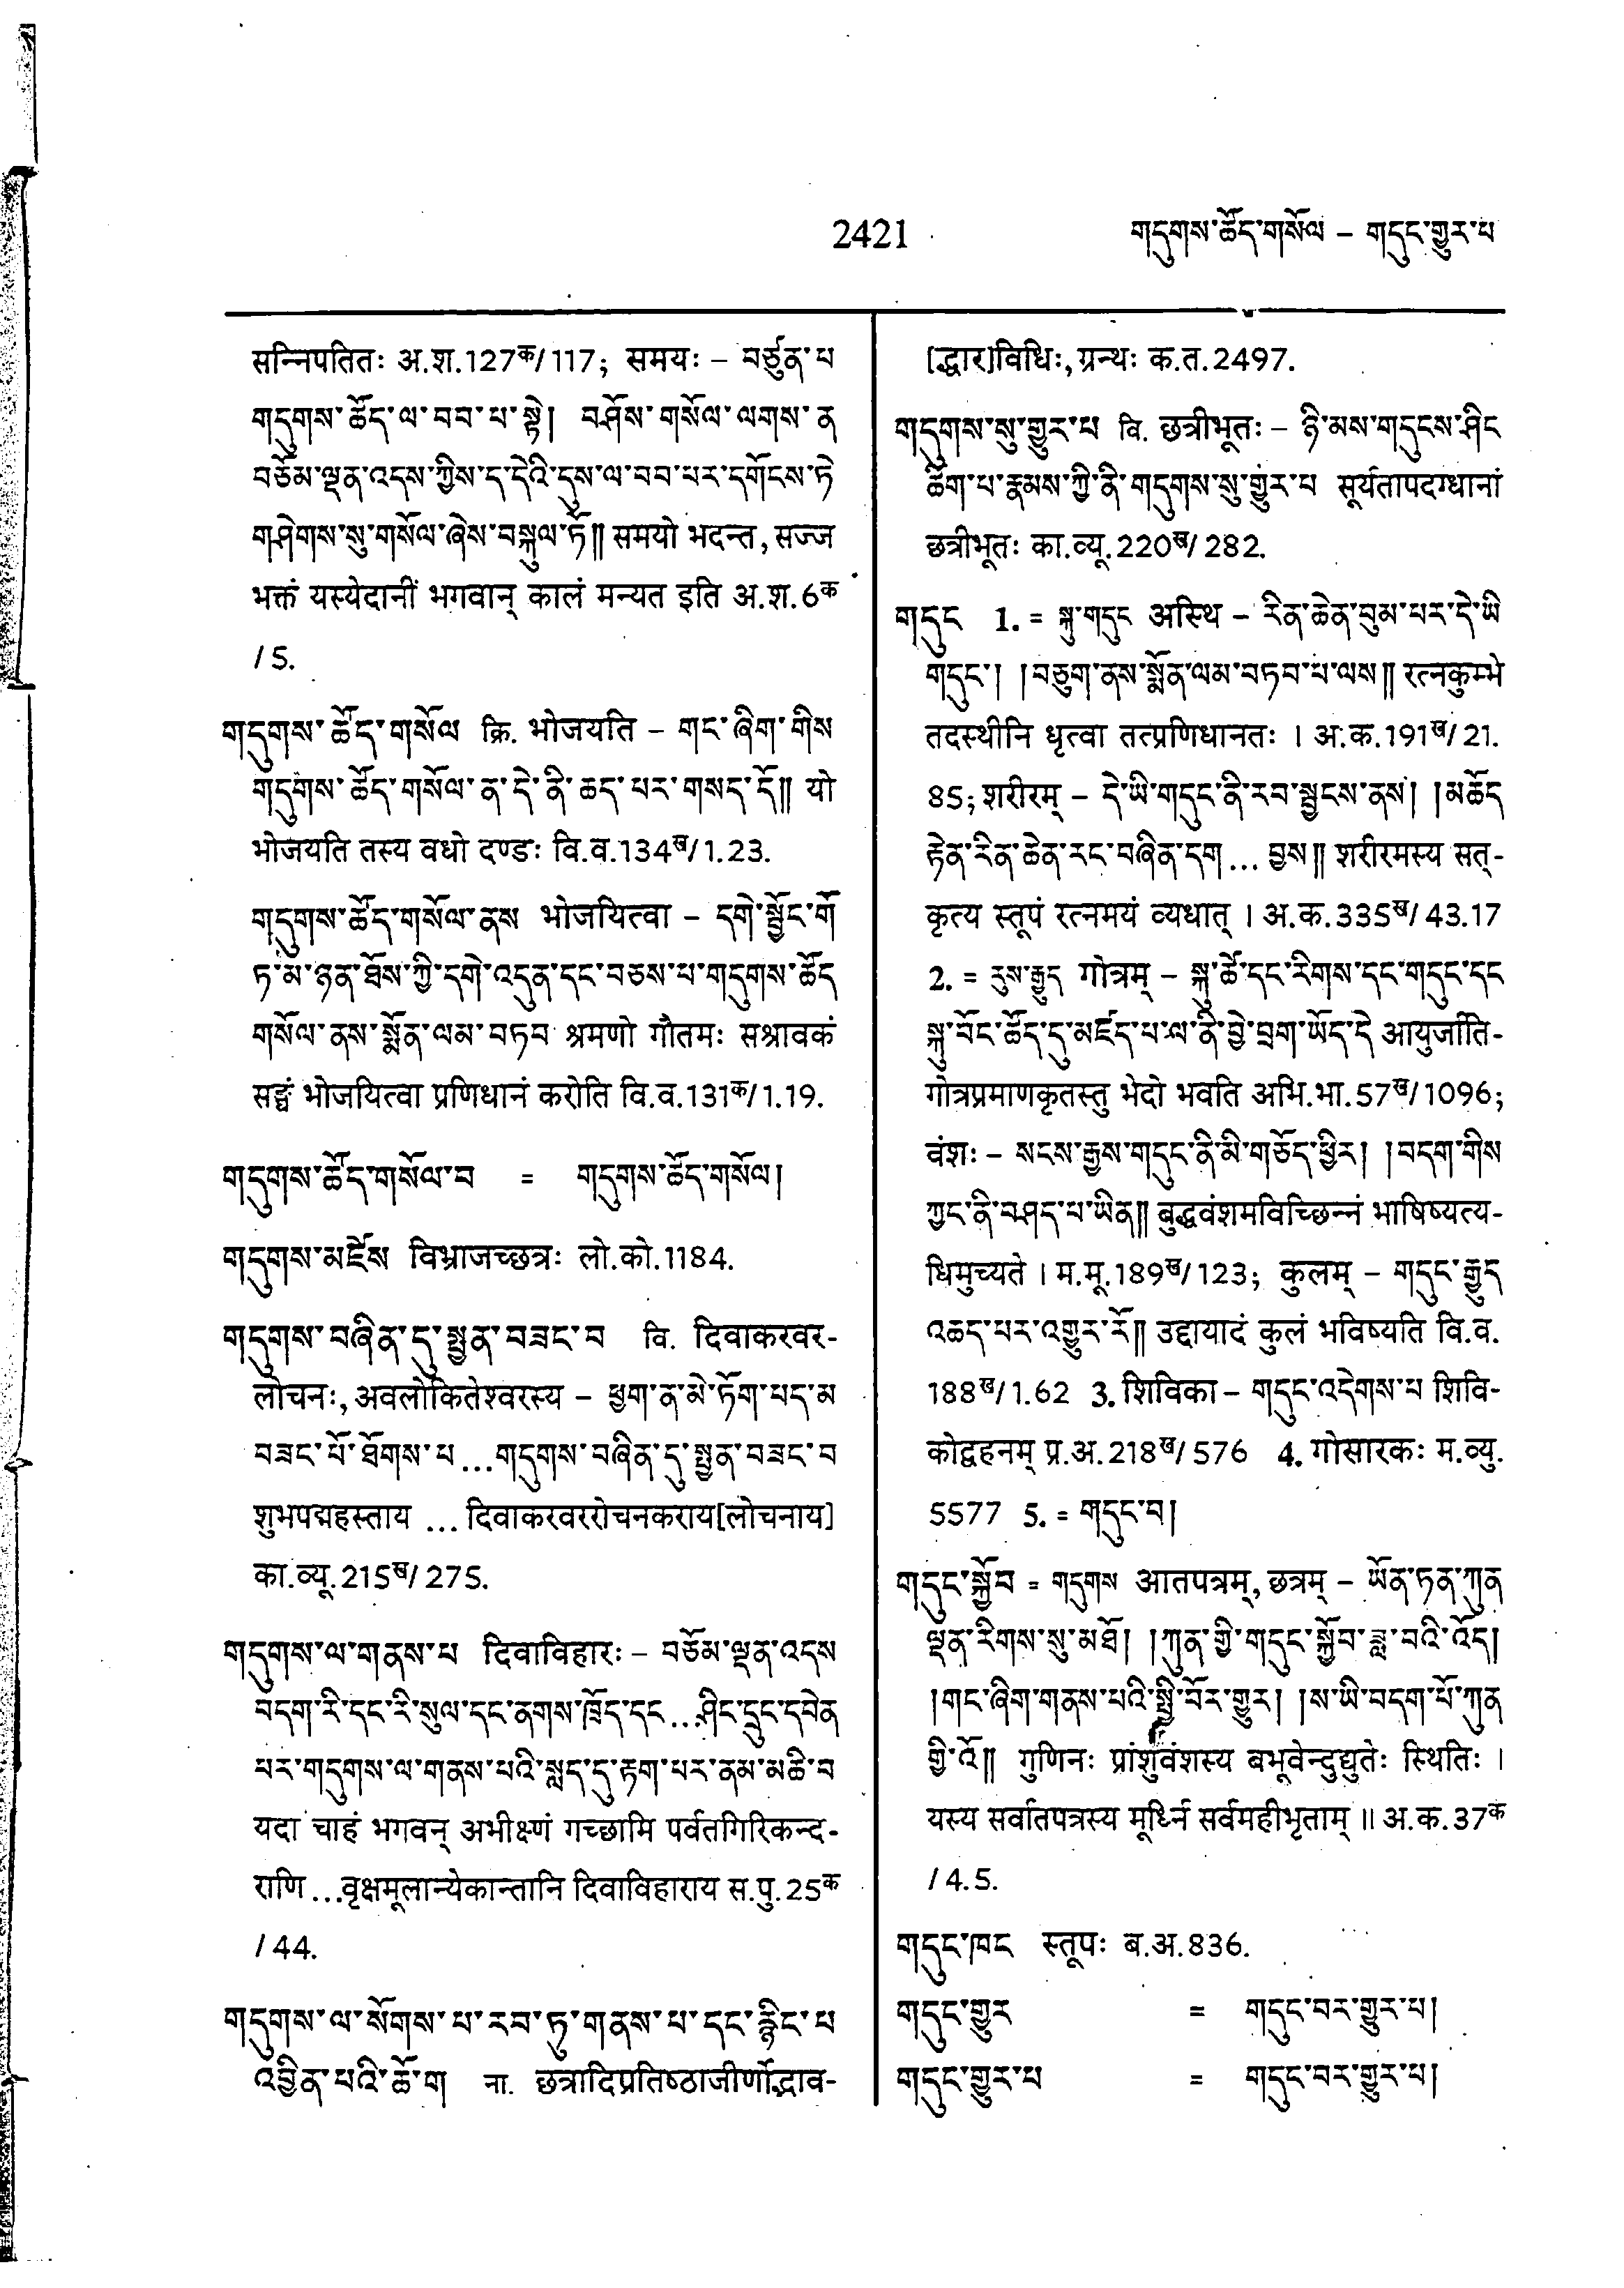 2421
གདུགས་ཚོད་གསོལ – གདུང་གྱུར་པ
सन्निपतितः अ.श.127क/117; समयः – བཙུན་པ
གདུགས་ཚོད་ལ་བབ་པ་སྟེ། བཤོས་གསོལ་ལགས་ན
བཅོམ་ལྡན་འདས་ཀྱིས་ད་དེའི་དུས་ལ་བབ་པར་དགོངས་ཏེ
གཤེགས་སུ་གསོལ་ཞེས་བསྐུལ་ཏོ༎ समयो भदन्त, सज्ज
भक्तं यस्येदानीं भगवान् कालं मन्यत इति अ.श.6क
/5.
གདུགས་ཚོད་གསོལ क्रि. भोजयति – གང་ཞིག་གིས
གདུགས་ཚོད་གསོལ་ན་དེ་ནི་ཆད་པར་གསད་དོ༎ यो
भोजयति तस्य वधो दण्डः वि.व.134ख/1.23.
གདུགས་ཚོད་གསོལ་ནས भोजयित्वा – དགེ་སྦྱོང་གོ
ཏ་མ་ཉན་ཐོས་ཀྱི་དགེ་འདུན་དང་བཅས་པ་གདུགས་ཚོད
གསོལ་ནས་སྨོན་ལམ་བཏབ श्रमणो गौतमः सश्रावकं
सङ्घं भोजयित्वा प्रणिधानं करोति वि.व.131क/1.19.
གདུགས་ཚོད་གསོལ་བ = གདུགས་ཚོད་གསོལ།
གདུགས་མཛེས विभ्राजच्छत्रः लो.को.1184.
གདུགས་བཞིན་དུ་སྤྱན་བཟང་བ वि. दिवाकरवर-
लोचनः, अवलोकितेश्वरस्य – ཕྱག་ན་མེ་ཏོག་པད་མ
བཟང་པོ་ཐོགས་པ ...གདུགས་བཞིན་དུ་སྤྱན་བཟང་བ
शुभपद्महस्ताय ... दिवाकरवररोचनकराय[लोचनाय]
का.व्यू.215ख/275.
གདུགས་ལ་གནས་པ दिवाविहारः – བཅོམ་ལྡན་འདས
བདག་རི་དང་རི་སུལ་དང་ནགས་ཁྲོད་དང ...ཤིང་དྲུང་དབེན
པར་གདུགས་ལ་གནས་པའི་སླད་དུ་རྟག་པར་ནམ་མཆི་བ
यदा चाहं भगवन् अभीक्ष्णं गच्छामि पर्वतगिरिकन्द-
राणि ...वृक्षमूलान्येकान्तानि दिवाविहाराय स.पु.25क
/44.
གདུགས་ལ་སོགས་པ་རབ་ཏུ་གནས་པ་དང་རྙིང་པ
འབྱིན་པའི་ཆོ་ག ना. छत्रादिप्रतिष्ठाजीर्णोद्भाव-
[द्धार]विधिः, ग्रन्थः क.त.2497.
གདུགས་སུ་གྱུར་པ वि. छत्रीभूतः – ཉི་མས་གདུངས་ཤིང
ཚིག་པ་རྣམས་ཀྱི་ནི་གདུགས་སུ་གྱུར་པ सूर्यतापदग्धानां
छत्रीभूतः का.व्यू.220ख/282.
གདུང 1. = སྐུ་གདུང अस्थि – རིན་ཆེན་བུམ་པར་དེ་ཡི
གདུང་། །བཅུག་ནས་སྨོན་ལམ་བཏབ་པ་ལས༎ रत्नकुम्भे
तदस्थीनि धृत्वा तत्प्रणिधानतः । अ.क.191ख/21.
85; शरीरम् – དེ་ཡི་གདུང་ནི་རབ་སྦྱངས་ནས། །མཆོད
རྟེན་རིན་ཆེན་རང་བཞིན་དག ... བྱས༎ शरीरमस्य सत्-
कृत्य स्तूपं रत्नमयं व्यधात् । अ.क.335ख/43.17
2. = རུས་རྒྱུད गोत्रम् – སྐུ་ཚེ་དང་རིགས་དང་གདུང་དང
སྐུ་བོང་ཚོད་དུ་མཛད་པ་ལ་ནི་བྱེ་བྲག་ཡོད་དེ आयुर्जाति-
गोत्रप्रमाणकृतस्तु भेदो भवति अभि.भा.57ख/1096;
वंशः – སངས་རྒྱས་གདུང་ནི་མི་གཅོད་ཕྱིར། །བདག་གིས
ཀྱང་ནི་བཤད་པ་ཡིན༎ बुद्धवंशमविच्छिन्नं भाषिष्यत्य-
धिमुच्यते । म.मू.189ख/123; कुलम् – གདུང་རྒྱུད
འཆད་པར་འགྱུར་རོ༎ उद्दायादं कुलं भविष्यति वि.व.
188ख/1.62 3. शिविका – གདུང་འདེགས་པ शिवि-
कोद्वहनम् प्र.अ.218ख/576 4. गोसारकः म.व्यु.
5577 5. = གདུང་བ།
གདུང་སྐྱོབ = གདུགས आतपत्रम्, छत्रम् – ཡོན་ཏན་ཀུན
ལྡན་རིགས་སུ་མཐོ། །ཀུན་གྱི་གདུང་སྐྱོབ་ཟླ་བའི་འོད།
།གང་ཞིག་གནས་པའི་སྤྱི་བོར་གྱུར། །ས་ཡི་བདག་པོ་ཀུན
གྱི་འོ༎ गुणिनः प्रांशुवंशस्य बभूवेन्दुद्युतेः स्थितिः ।
यस्य सर्वातपत्रस्य मूर्ध्नि सर्वमहीभृताम् ॥ अ.क.37क
/4.5.
གདུང་ཁང स्तूपः ब.अ.836.
གདུང་གྱུར = གདུང་བར་གྱུར་པ།
གདུང་གྱུར་པ = གདུང་བར་གྱུར་པ།